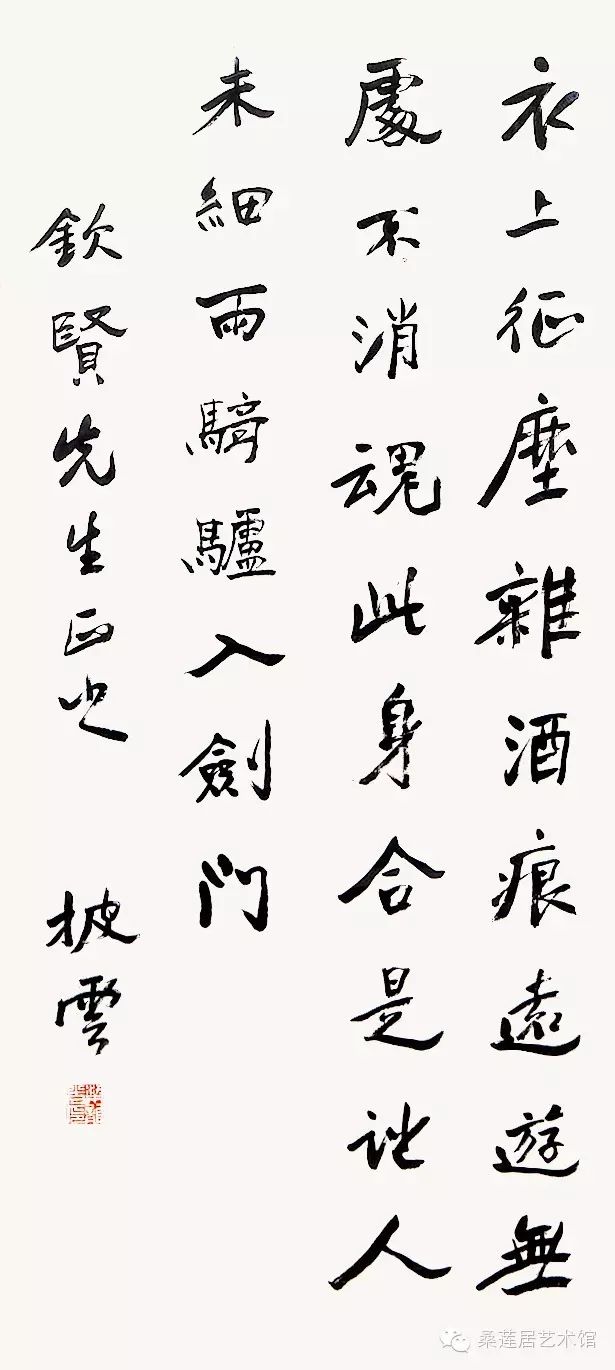 衣上征塵雜酒痕遠遊無
處不消魂此身合是詩人
未細雨騎驢入劍門
欽賢先生正之 披雲
桑莲居艺术馆